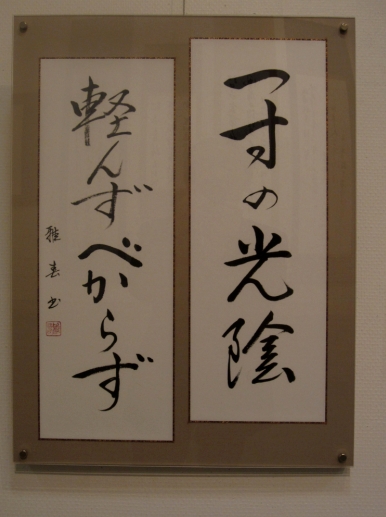 一寸の光陰
軽んずべからず
雅春書